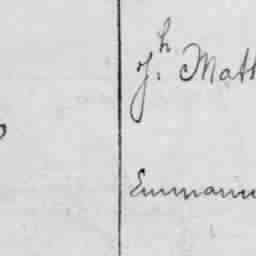 Jh. Math
Emmanu